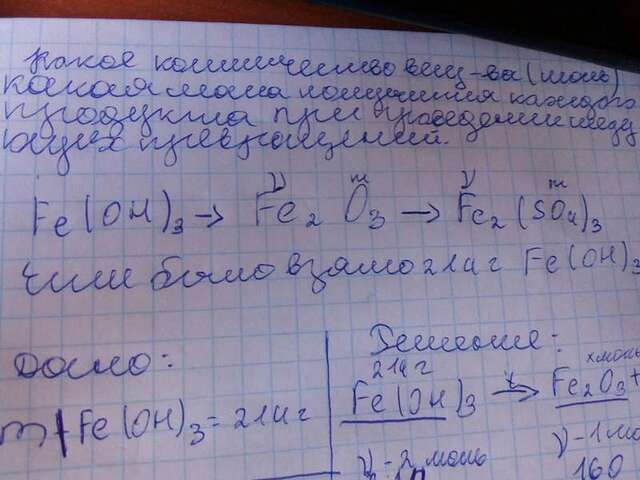 Какое количество вещ-ва (моль)
какая масса получится каждого
продукта при проведении следу
ющих превращений.
ν m ν m
Fe(OH)3 → Fe2O3 → Fe2(SO4)3
Если было взято 214 г Fe(OH)3
Дано:
m Fe(OH)3 = 214 г
Решение:
214 г х моль
Fe(OH)3 t→ Fe2O3 +
ν-2 моль ν-1 мо
160